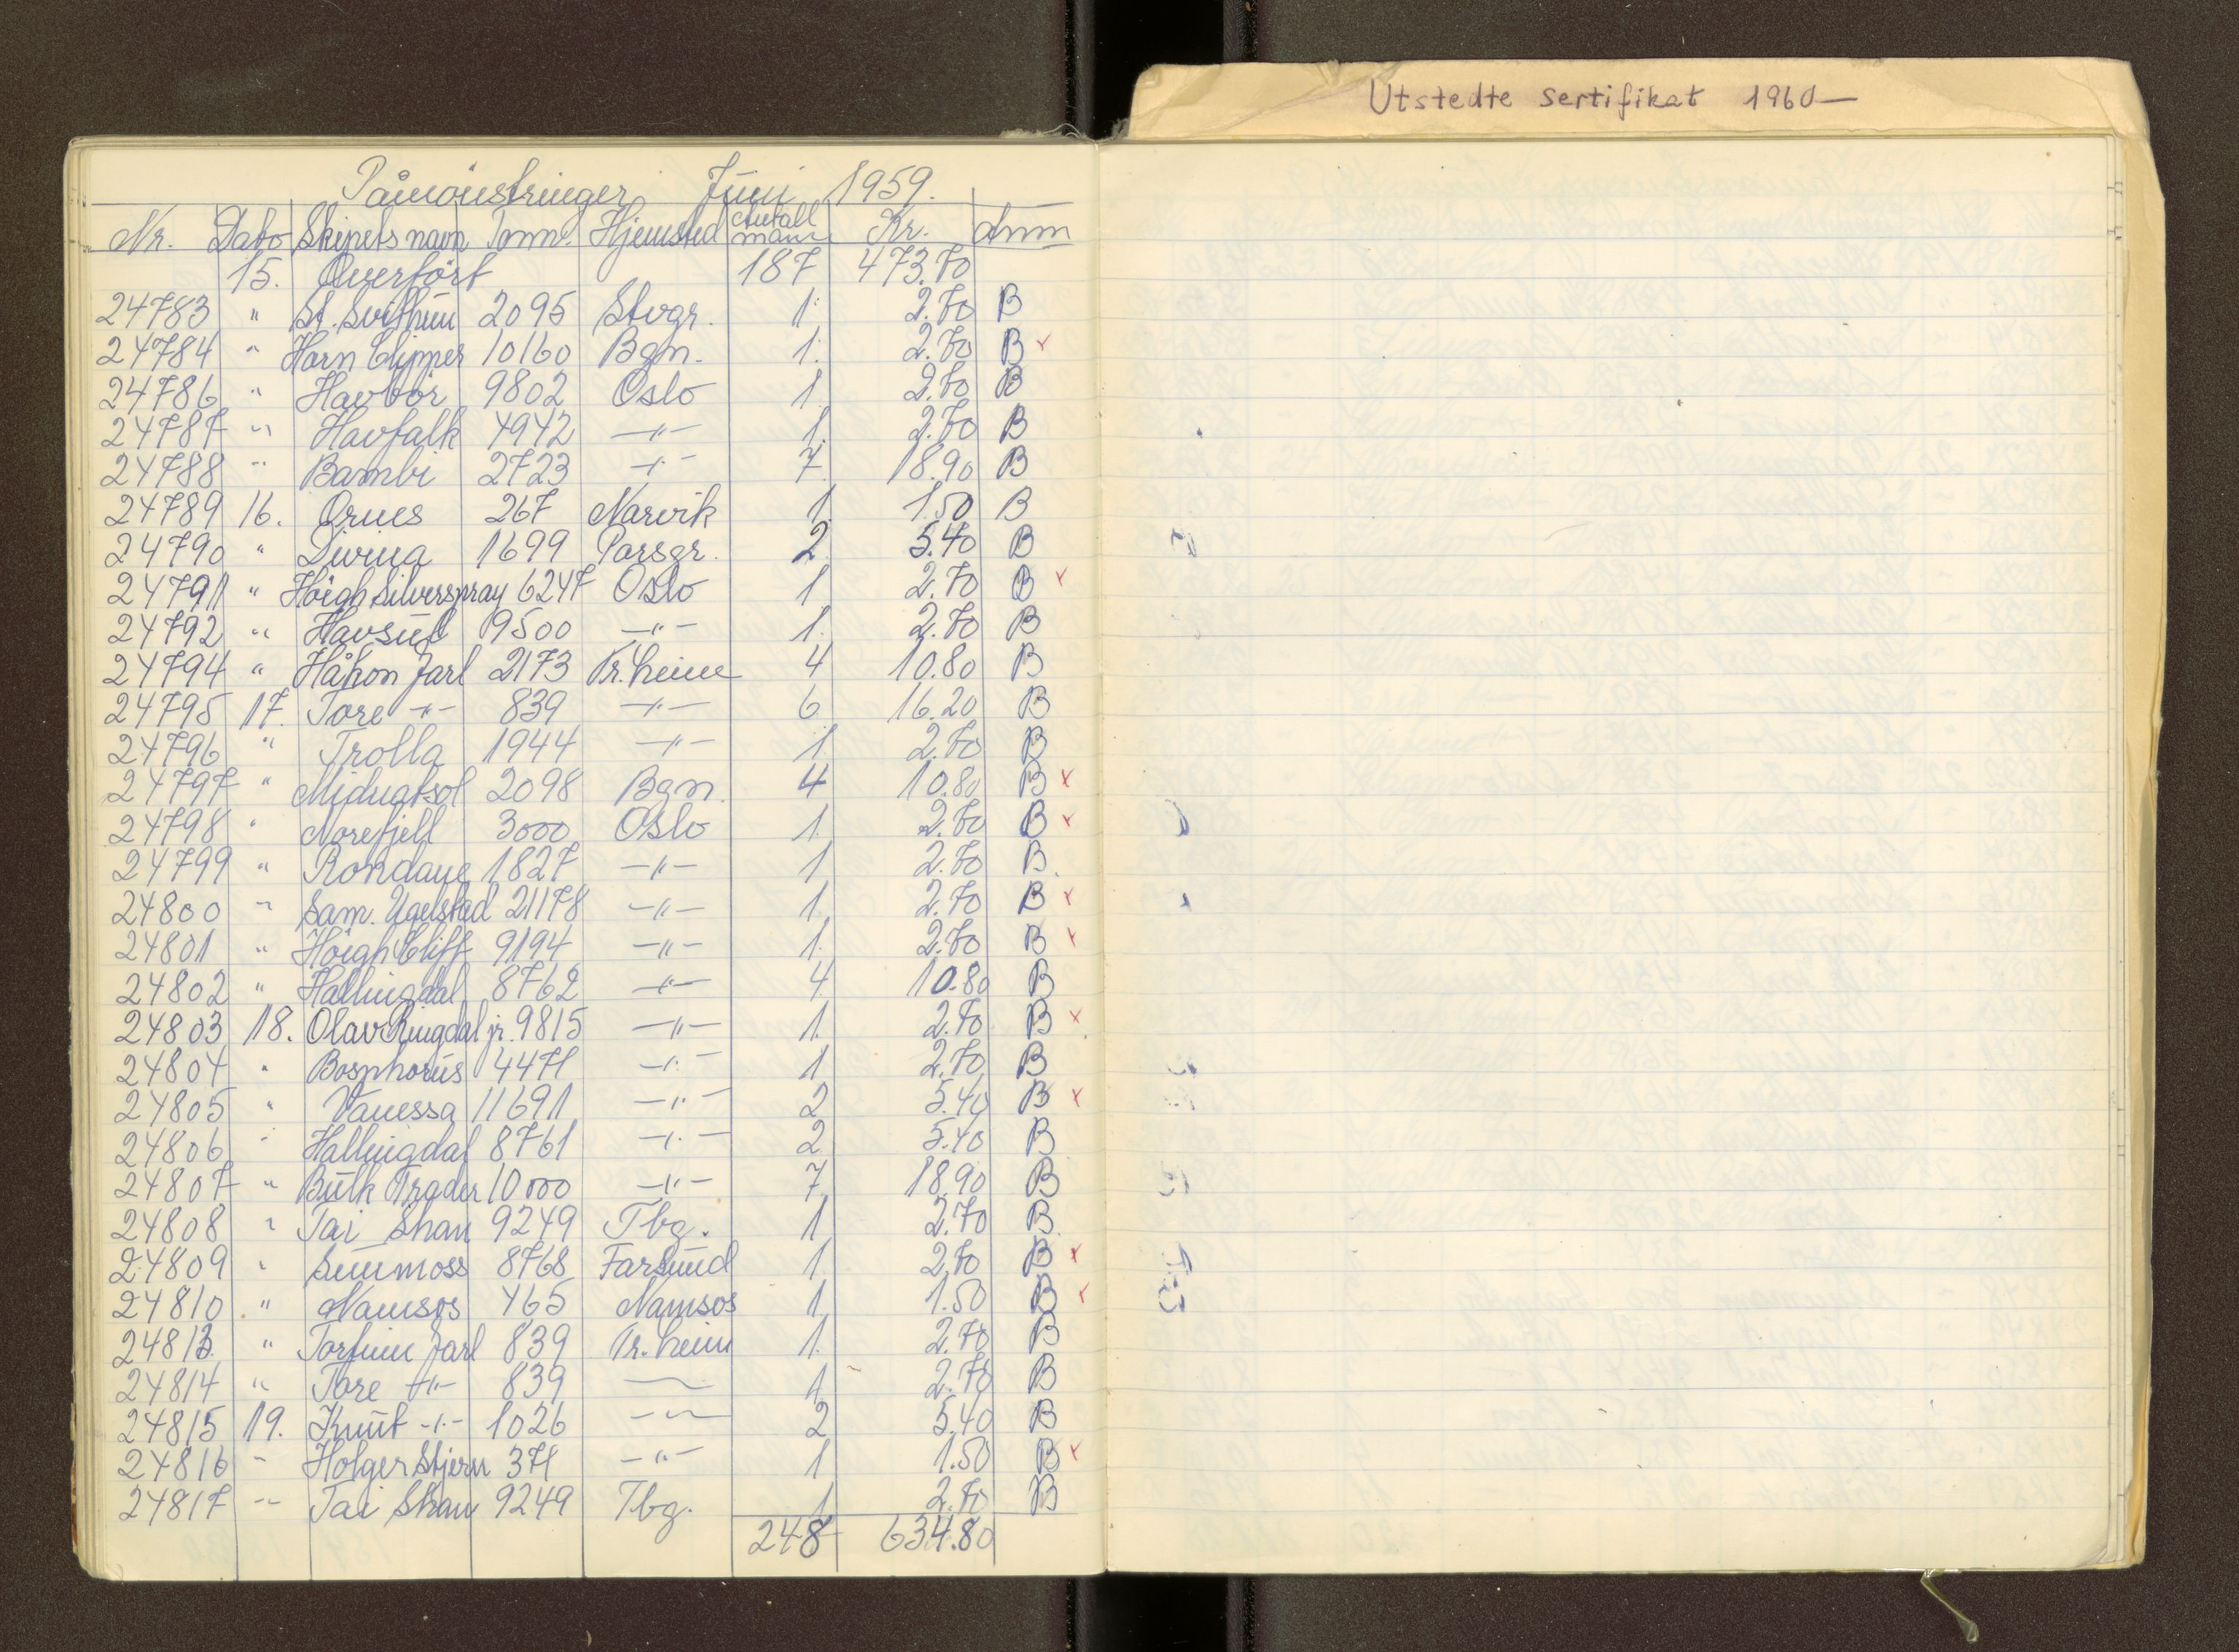 Utstedte sertifikat 1960—
Påmönstringer Juni 1959.
Nr. Dato Skipets navn Tonn. Hjemsted Antall mann Kr. Anm
15. Overfört 187 473.70
24783 " St. Svithun 2095 Stvgr. 1 2.70 B
24784 " Horn Clipper 10160 Bgn. 1. 2.70 B x
24786 " Havbör 9802 Oslo 1 2.70 B
24787 " Havfalk 4942 —"— 1. 2.70 B
24788 " Bambi 2723 —"— 7 18.90 B
24789 16. Örnes 267 Narvik 1 1.50 B
24790 " Divina 1699 Porsgr. 2 5.40 B
24791 " Höigh Silverspray 6247 Oslo 1 2.70 B x
24792 " Havsul 19500 —"— 1. 2.70 B
24794 " Håkon Jarl 2173 Tr.heim 4 10.80 B
24795 17. Tore —"— 839 —"— 6 16.20 B
24796 " Trolla 1944 —"— 1 2.70 B
24797 " Midnatsol 2098 Bgn. 4 10.80 B x
24798 " Norefjell 3000 Oslo 1 2.70 B x
24799 " Rondane 1827 —"— 1 2.70 B.
24800 " Sam. Ugelstad 21178 —"— 1 2.70 B x
24801 " Höigh Cliff 9194 —"— 1. 2.70 B x
24802 " Hallingdal 8762 —"— 4 10.80 B
24803 18. Olav Ringdal jr. 9815 —"— 1. 2.70 B x
24804 " Bosphorus 4471 —"— 1 2.70 B
24805 " Vanessa 11691 —"— 2 5.40 B x
24806 " Hallingdal 8761 —"— 2 5.40 B
24807 " Bulk Trader 10000 —"— 7 18.90 B
24808 " Tai Shan 9249 Tbg. 1 2.70 B
24809 " Sunmoss 8768 Farsund 1 2.70 B x
24810 " Namsos 465 Namsos 1 1.50 B x
24813. " Torfinn Jarl 839 Tr.heim 1. 2.70 B
24814 " Tore —"— 839 —"— 1 2.70 B
24815 19. Knut —"— 1026 —"— 2 5.40 B
24816 " Holger Stjern 371 —"— 1 1.50 B x
24817 " Tai Shan 9249 Tbg. 1 2.70 B
248 634.80